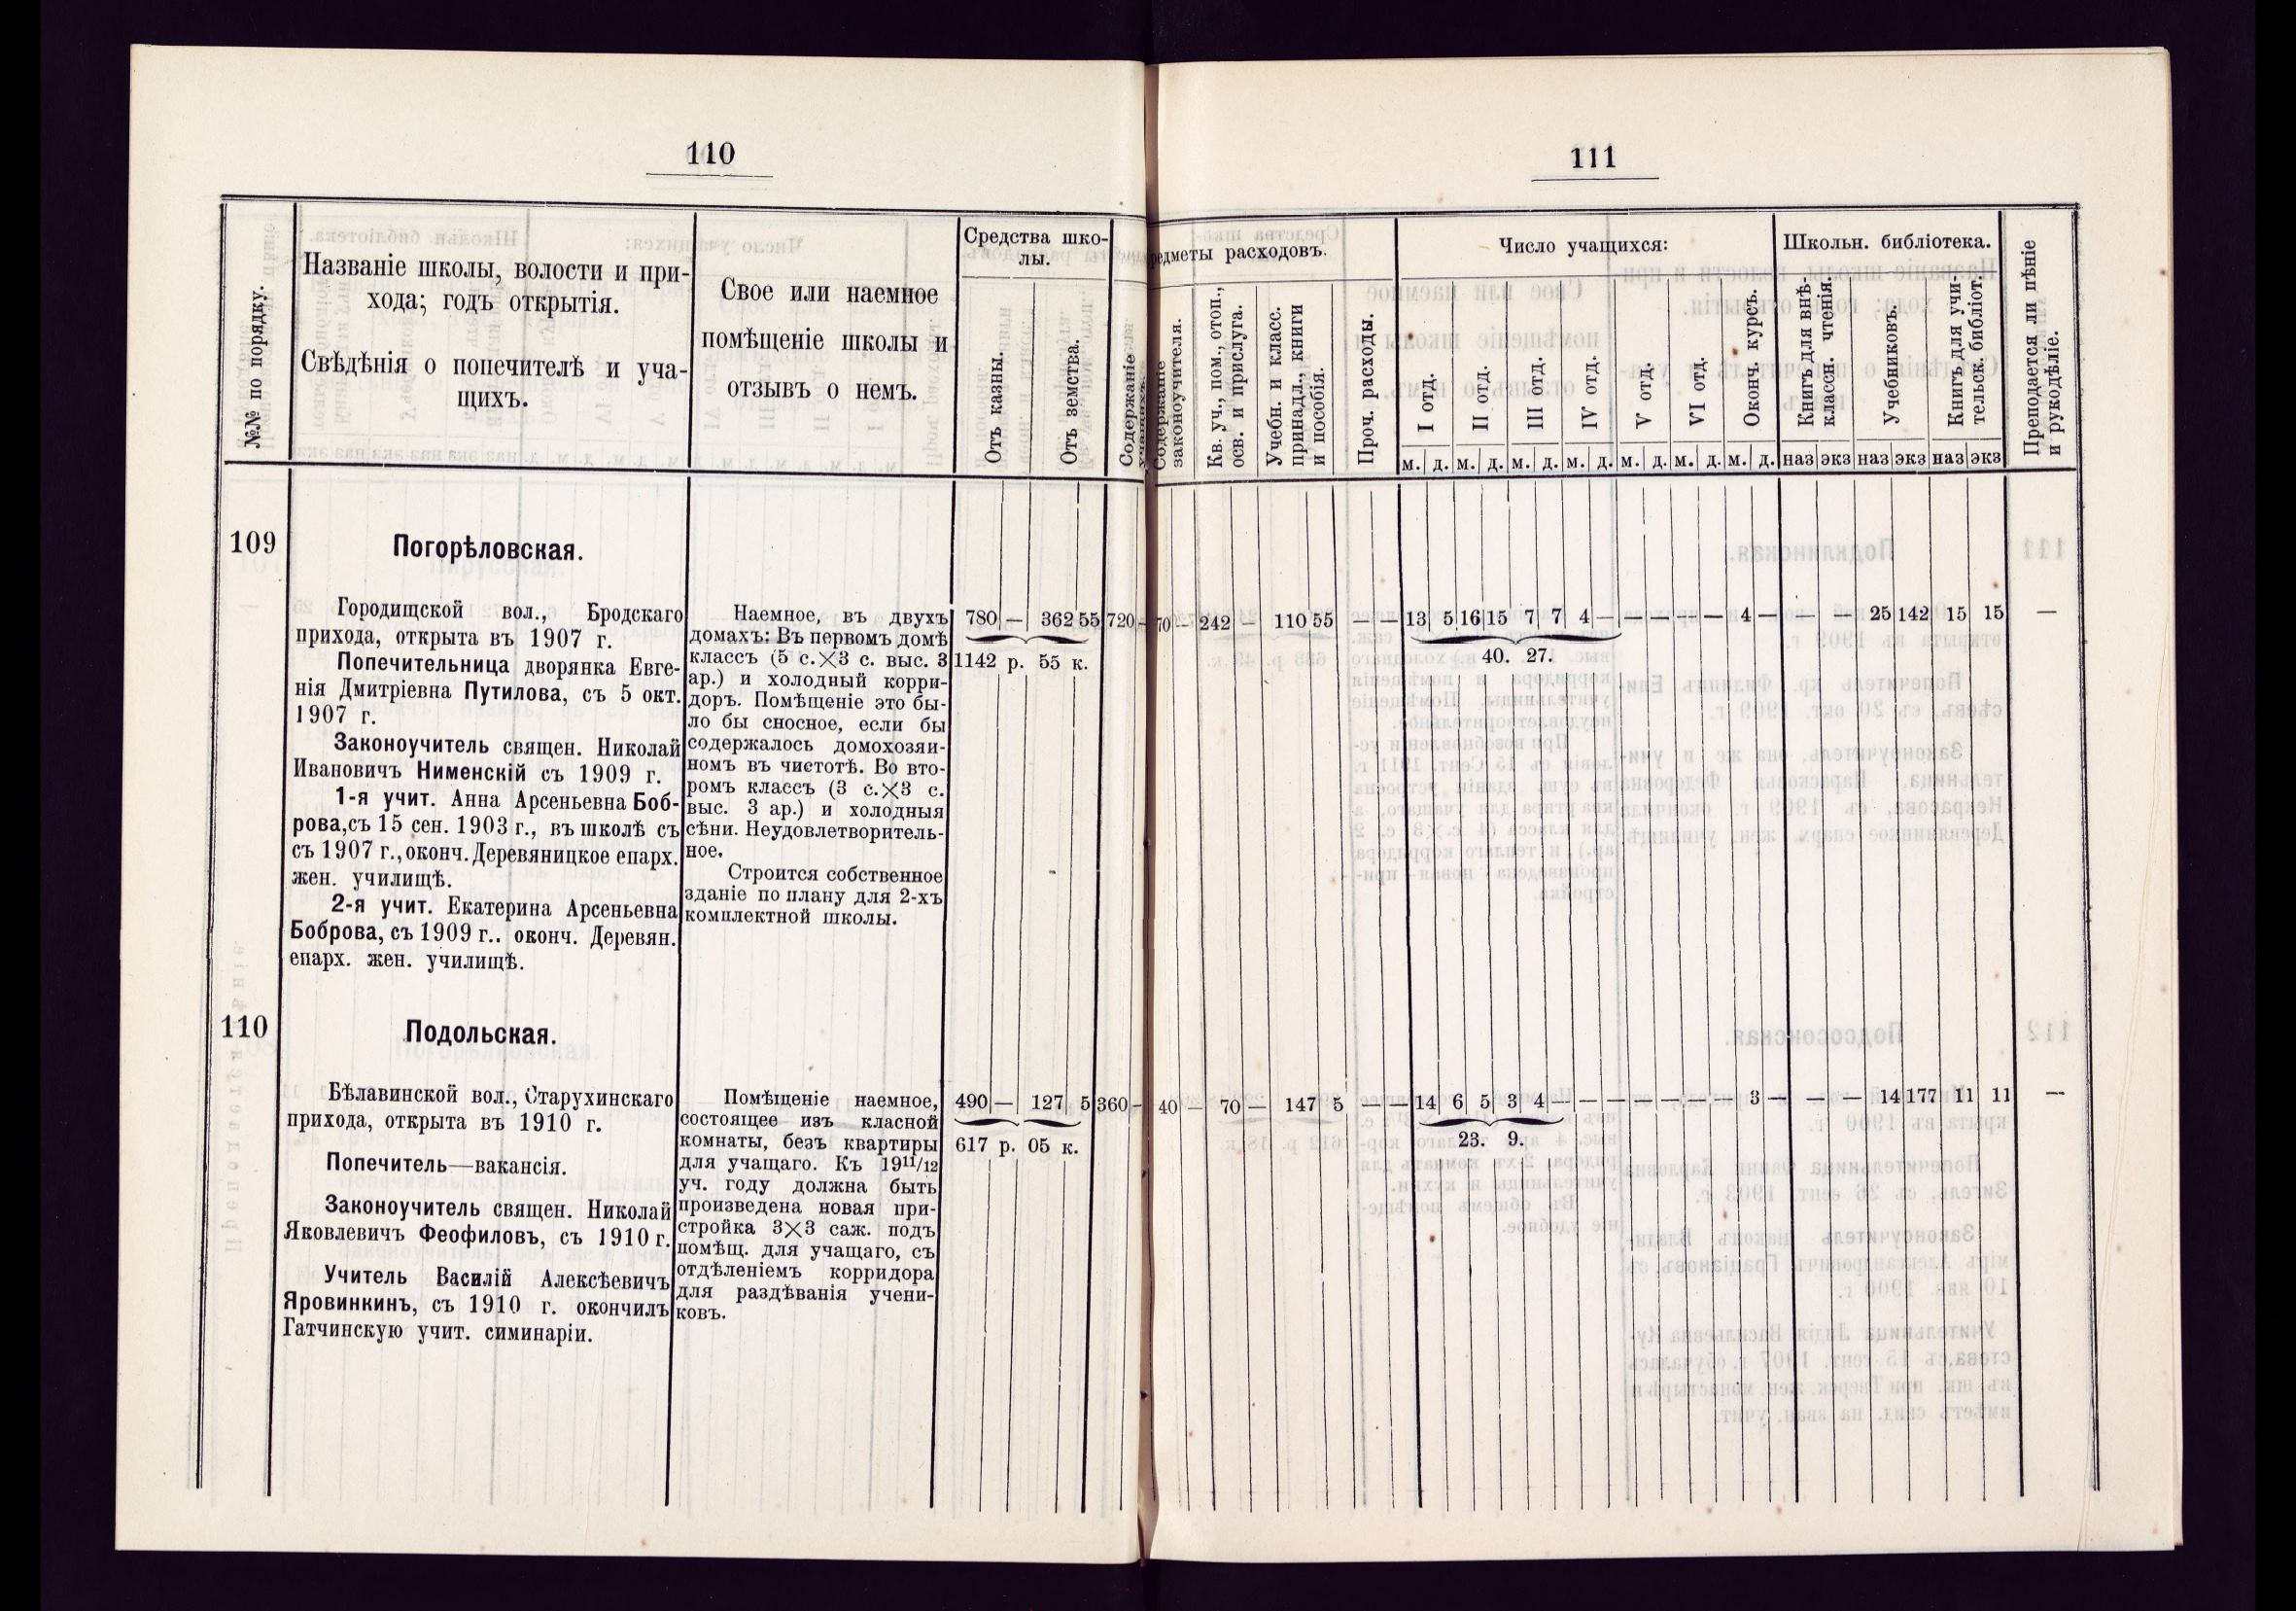 110
№№ по порядку.
Названіе школы, волости и при-
хода; годъ открытія.
Свѣдѣнія о попечителѣ и уча-
щихъ.
Свое или наемное
помѣщеніе школы и
отзывъ о немъ.
Средства шко-
лы.
Отъ казны.
Отъ земства.
Содержаніе
109
Погорѣловская.
Городищской вол., Бродскаго
прихода, открыта въ 1907 г.
Попечительница дворянка Евге-
нія Дмитріевна Путилова, съ 5 окт.
1907 г.
Законоучитель священ. Николай
Ивановичъ Нименскій съ 1909 г.
1-я учит. Анна Арсеньевна Боб-
рова, съ 15 сен. 1903 г., въ школѣ съ
съ 1907 г., оконч. Деревяницкое епарх.
жен. училищѣ.
2-я учит. Екатерина Арсеньевна
Боброва, съ 1909 г.. оконч. Деревян.
епарх. жен. училищѣ.
Наемное, въ двухъ
домахъ: Въ первомъ домѣ
классъ (5 с.✕3 с. выс. 3
ар.) и холодный корри-
доръ. Помѣщеніе это бы-
ло бы сносное, если бы
содержалось домохозяи-
номъ въ чистотѣ. Во вто-
ромъ классъ (3 с.✕3 с.
выс. 3 ар.) и холодныя
сѣни. Неудовлетворитель-
ное.
Строится собственное
зданіе по плану для 2-хъ
комплектной школы.
780 — 362 55 720 -
1142 р. 55 к.
110
Подольская.
Бѣлавинской вол., Старухинскаго
прихода, открыта въ 1910 г.
Попечитель—вакансія.
Законоучитель священ. Николай
Яковлевичъ Феофиловъ, съ 1910 г.
Учитель Василій Алексѣевичъ
Яровинкинъ, съ 1910 г. окончилъ
Гатчинскую учит. симинаріи.
Помѣщеніе наемное,
состоящее изъ класной
комнаты, безъ квартиры
для учащаго. Къ 19¹¹/₁₂
уч. году должна быть
произведена новая при-
стройка 3✕3 саж. подъ
помѣщ. для учащаго, съ
отдѣленіемъ корридора
для раздѣванія учени-
ковъ.
490 — 127 5 360 -
617 р. 05 к.
111
редметы расходовъ.
Содержаніе
законоучителя.
Кв. уч., пом., отоп.,
осв. и прислуга.
Учебн. и класс.
принадл., книги
и пособія.
Проч. расходы.
Число учащихся:
I отд.
II отд.
III отд.
IV отд.
V отд.
VI отд.
Оконч. курсъ.
м. д. м. д. м. д. м. д. м. д. м. д. м. д.
Школьн. библіотека.
Книгъ для внѣ-
классн. чтенія.
Учебниковъ.
Книгъ для учи-
тельск. библіот.
наз экз наз экз наз экз
Преподается ли пѣніе
и рукодѣліе.
70 — 242 — 110 55 — — 13 5 16 15 7 7 4 — — — — — 4 — — — 25 142 15 15 —
40. 27.
40 — 70 — 147 5 — — 14 6 5 3 4 — — — — — — — 3 — — — 14 177 11 11 —
23. 9.